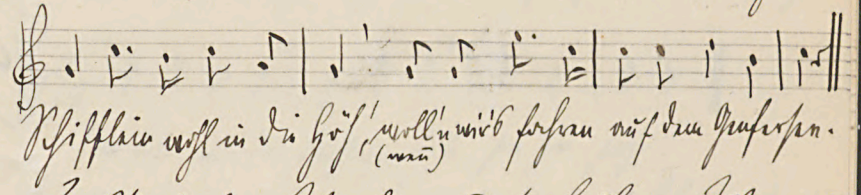 Schifflein wohl in die Höh', woll'n wir's fahren auf dem Genfersee.
(wenn)